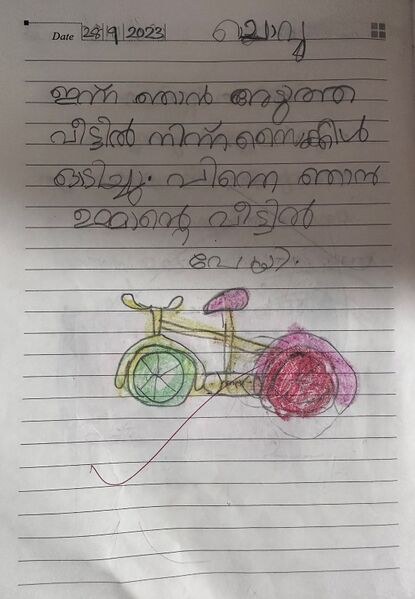 Date 28/9/2023 ചൊവ്വ
ഇന്ന് ഞാൻ അടുത്ത
വീട്ടിൽ നിന്ന് സൈക്കിൾ
ഓടിച്ചു. പിന്നെ ഞാൻ
ഉമ്മാന്റെ വീട്ടിൽ
പോയി.